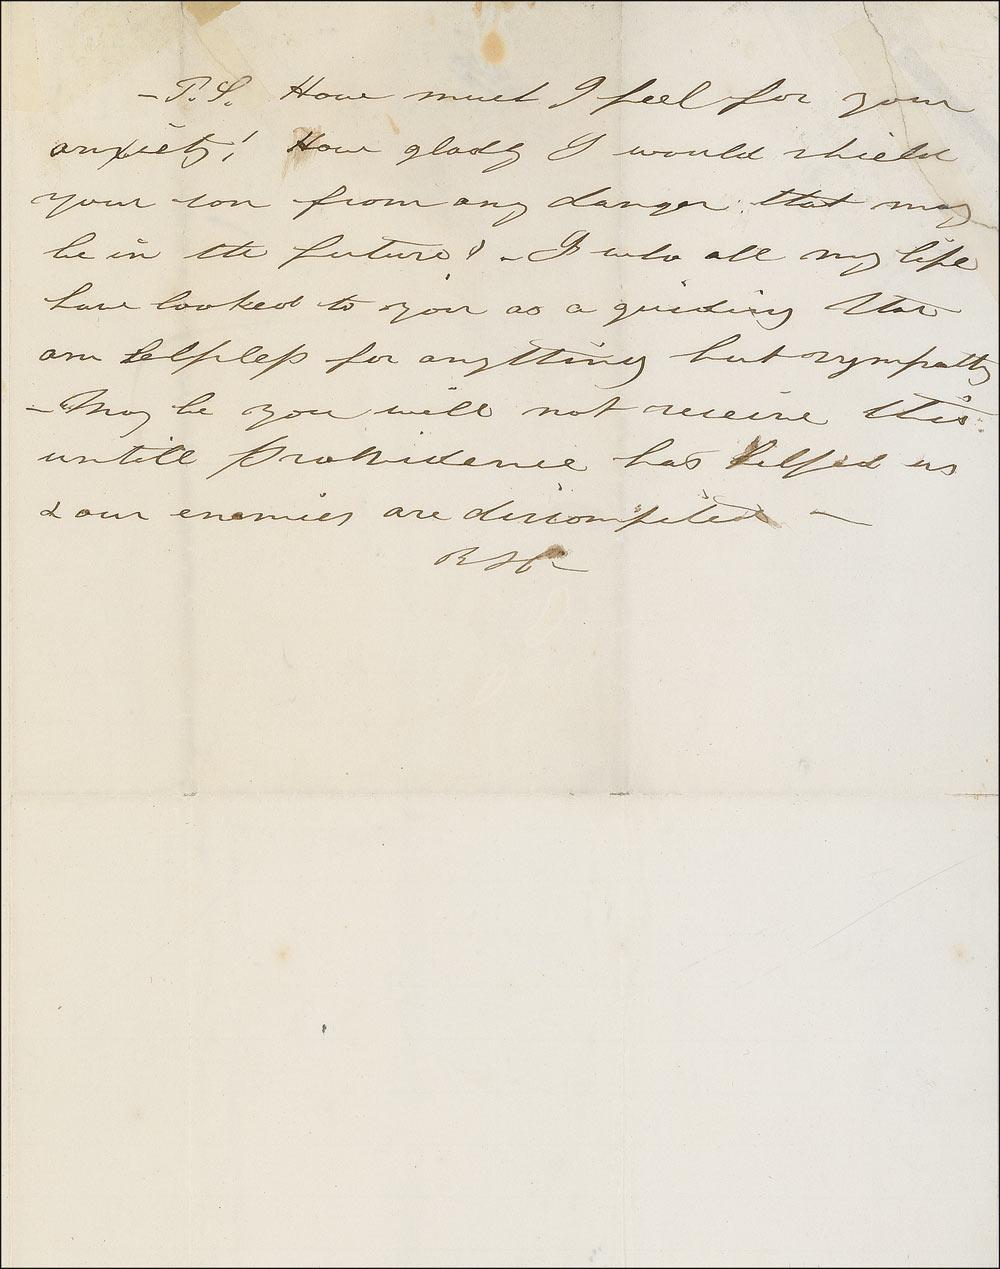 - P.S. How much I feel for your
anxiety! How gladly I would shield
your son from any danger that may
be in the future! - I who all my life
have looked to you as a guiding Star
am helpless for anything but sympathy
- May be you will not receive this
untill Providence has helped us
& our enemies are discomfited -